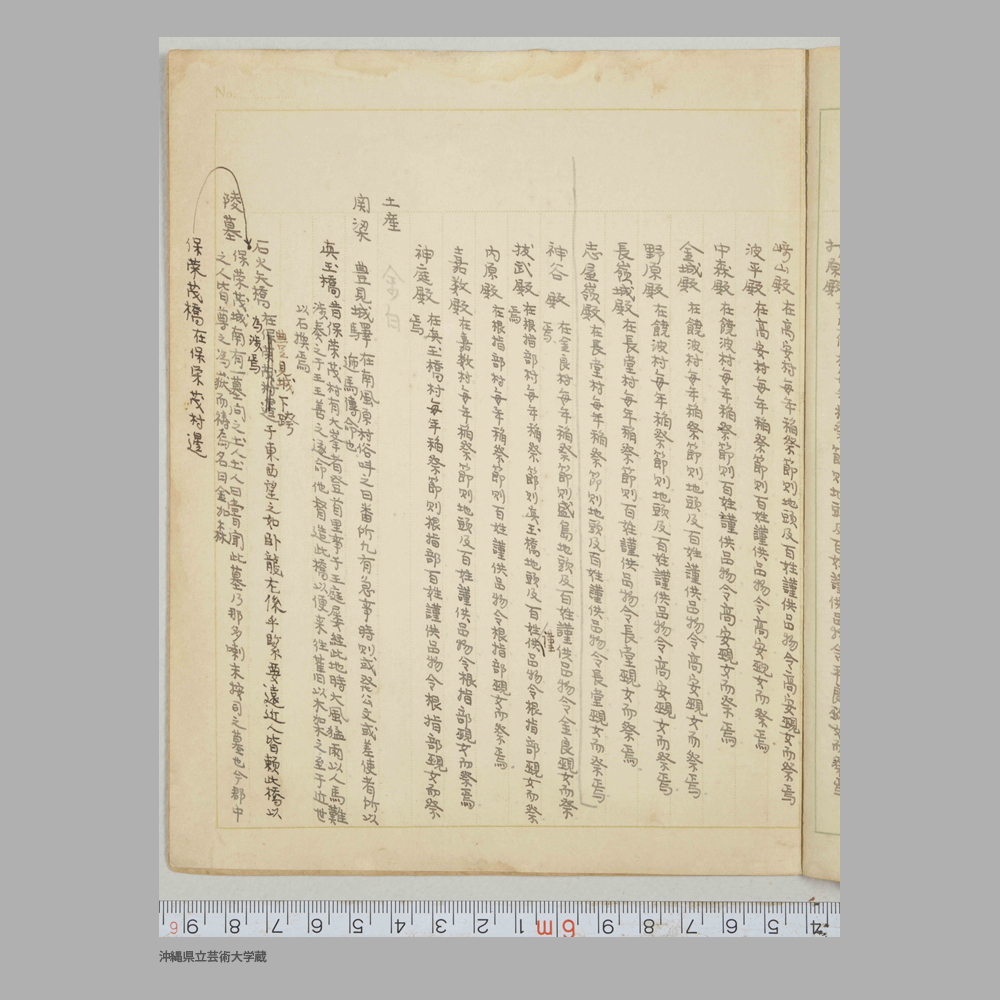 﨑山殿 在高安村毎年稲祭節則地頭及百姓謹供品物令高安覡女而祭焉
波平殿 在高安村毎年稲祭節則百姓謹供品物令高安覡女而祭焉
中森殿 在饒波村毎年稲祭節則百姓謹供品物令高安覡女而祭焉
金城殿 在饒波村毎年稲祭節則地頭及百姓謹供品物令高安覡女而祭焉
野原殿 在饒波村毎年稲祭節則地頭及百姓謹供品物令高安覡女而祭焉
長嶺城殿 在長堂村毎年稲祭節則百姓謹供品物令長堂覡女而祭焉
志屋嶺殿 在長堂村毎年稲祭節則地頭及百姓謹供品物令長堂覡女而祭焉
神谷殿 在金良村毎年稲祭節則盛島地頭及百姓謹供品物令金良覡女而祭
焉
拔武殿 在根指部村毎年稲祭節則真玉橋地頭及百姓謹供品物令根指部覡女而祭
焉
内原殿 在根指部村毎年稲祭節則百姓謹供品物令根指部覡女而祭焉
嘉数殿 在嘉数村毎年稲祭節則地頭及百姓謹供品物令根指部覡女而祭焉
神庭殿 在真玉橋村毎年稲祭節則根指部百姓謹供品物令根指部覡女而祭
焉
土産
関梁
豊見城驛 在南風原村俗呼之曰番所凡有急事時則或發公文或差使者所以
遞馬傳命也
真玉橋 昔保栄茂村有大孝者登首里事于王庭屡経此地時大風猛雨以人馬難
渉奏之于王王善之遂命他督造此橋以便来往舊旧以木架之至于近世
以石換焉
石火矢橋 在豊見城下跨于東西望之如卧龍尤係乎緊要遠近人皆頼此橋以
為渉焉
陵墓
保栄茂城南有一墓向之土人土人曰嘗聞此墓乃那多喇末按司之墓也今郡中
之人皆尊之為嶽而禱為名曰金松森
保栄茂橋在保栄茂村邊
沖縄県立芸術大学蔵